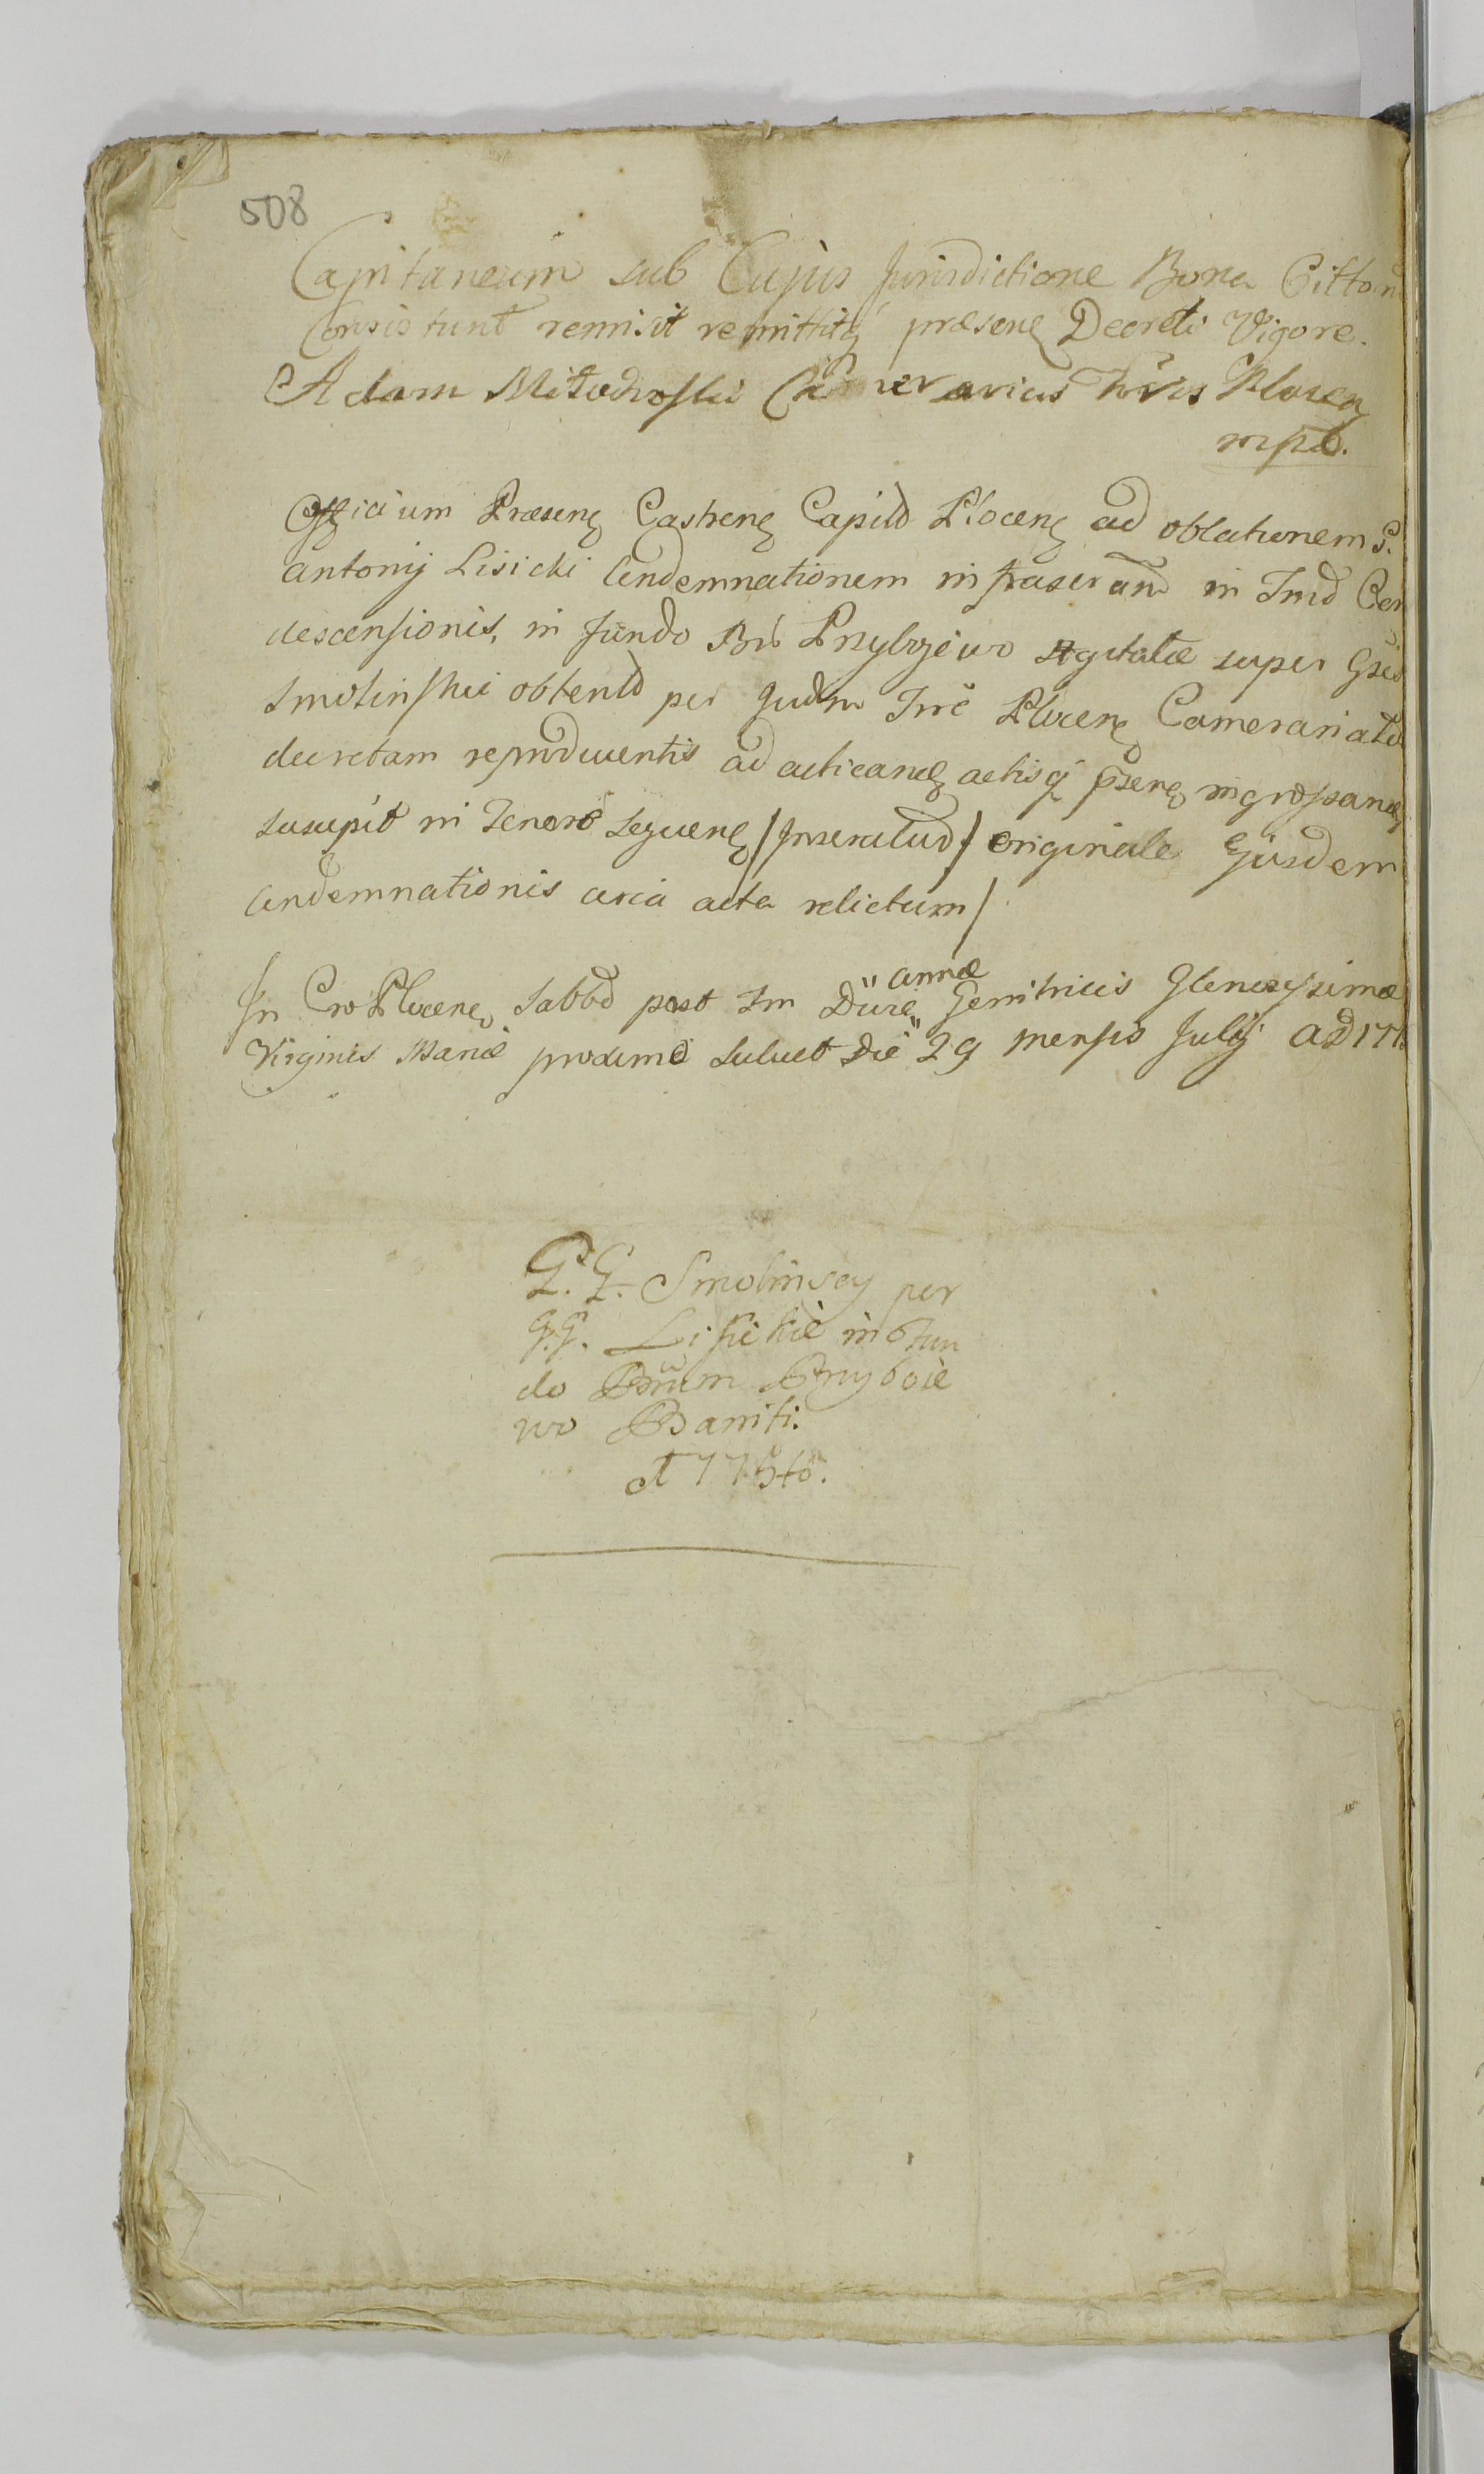 508
Capitaneum sub Cujus Jurisdictione Bona Citton
Consistunt remisit remittitq præsenę Decreti Vigore.
Adam Mitodroski Camerarius Plocenę
mpd.
Officium Præsenę Castrenę Capitld Plocenę ad oblationem S.
Antonij Lisicki Condemnationem infrascr in Tmd Con
descensionis, in fundo Przybyjewo Agitatæ super Gsis
Smolinskie obtentd per Judm Plocenę Cameraria
decretam reproducentis ad acticandę actisq psenę ingrossandę
suscepit in Tenore sequenę / Inseratud / originale Ejusdem
Condemnationis circa acta relictum /
annæ
In Cro Plocenę Sabbd post tm Diüæ Genitricis Gloriosissimæ
Virginis Mariæ proximo scilicet Die 29 mensis Julij AD 171
G. G. Smolinscy per
G.G. Lisickie in Fun
do Bnum Przyboie
wo Baniti.